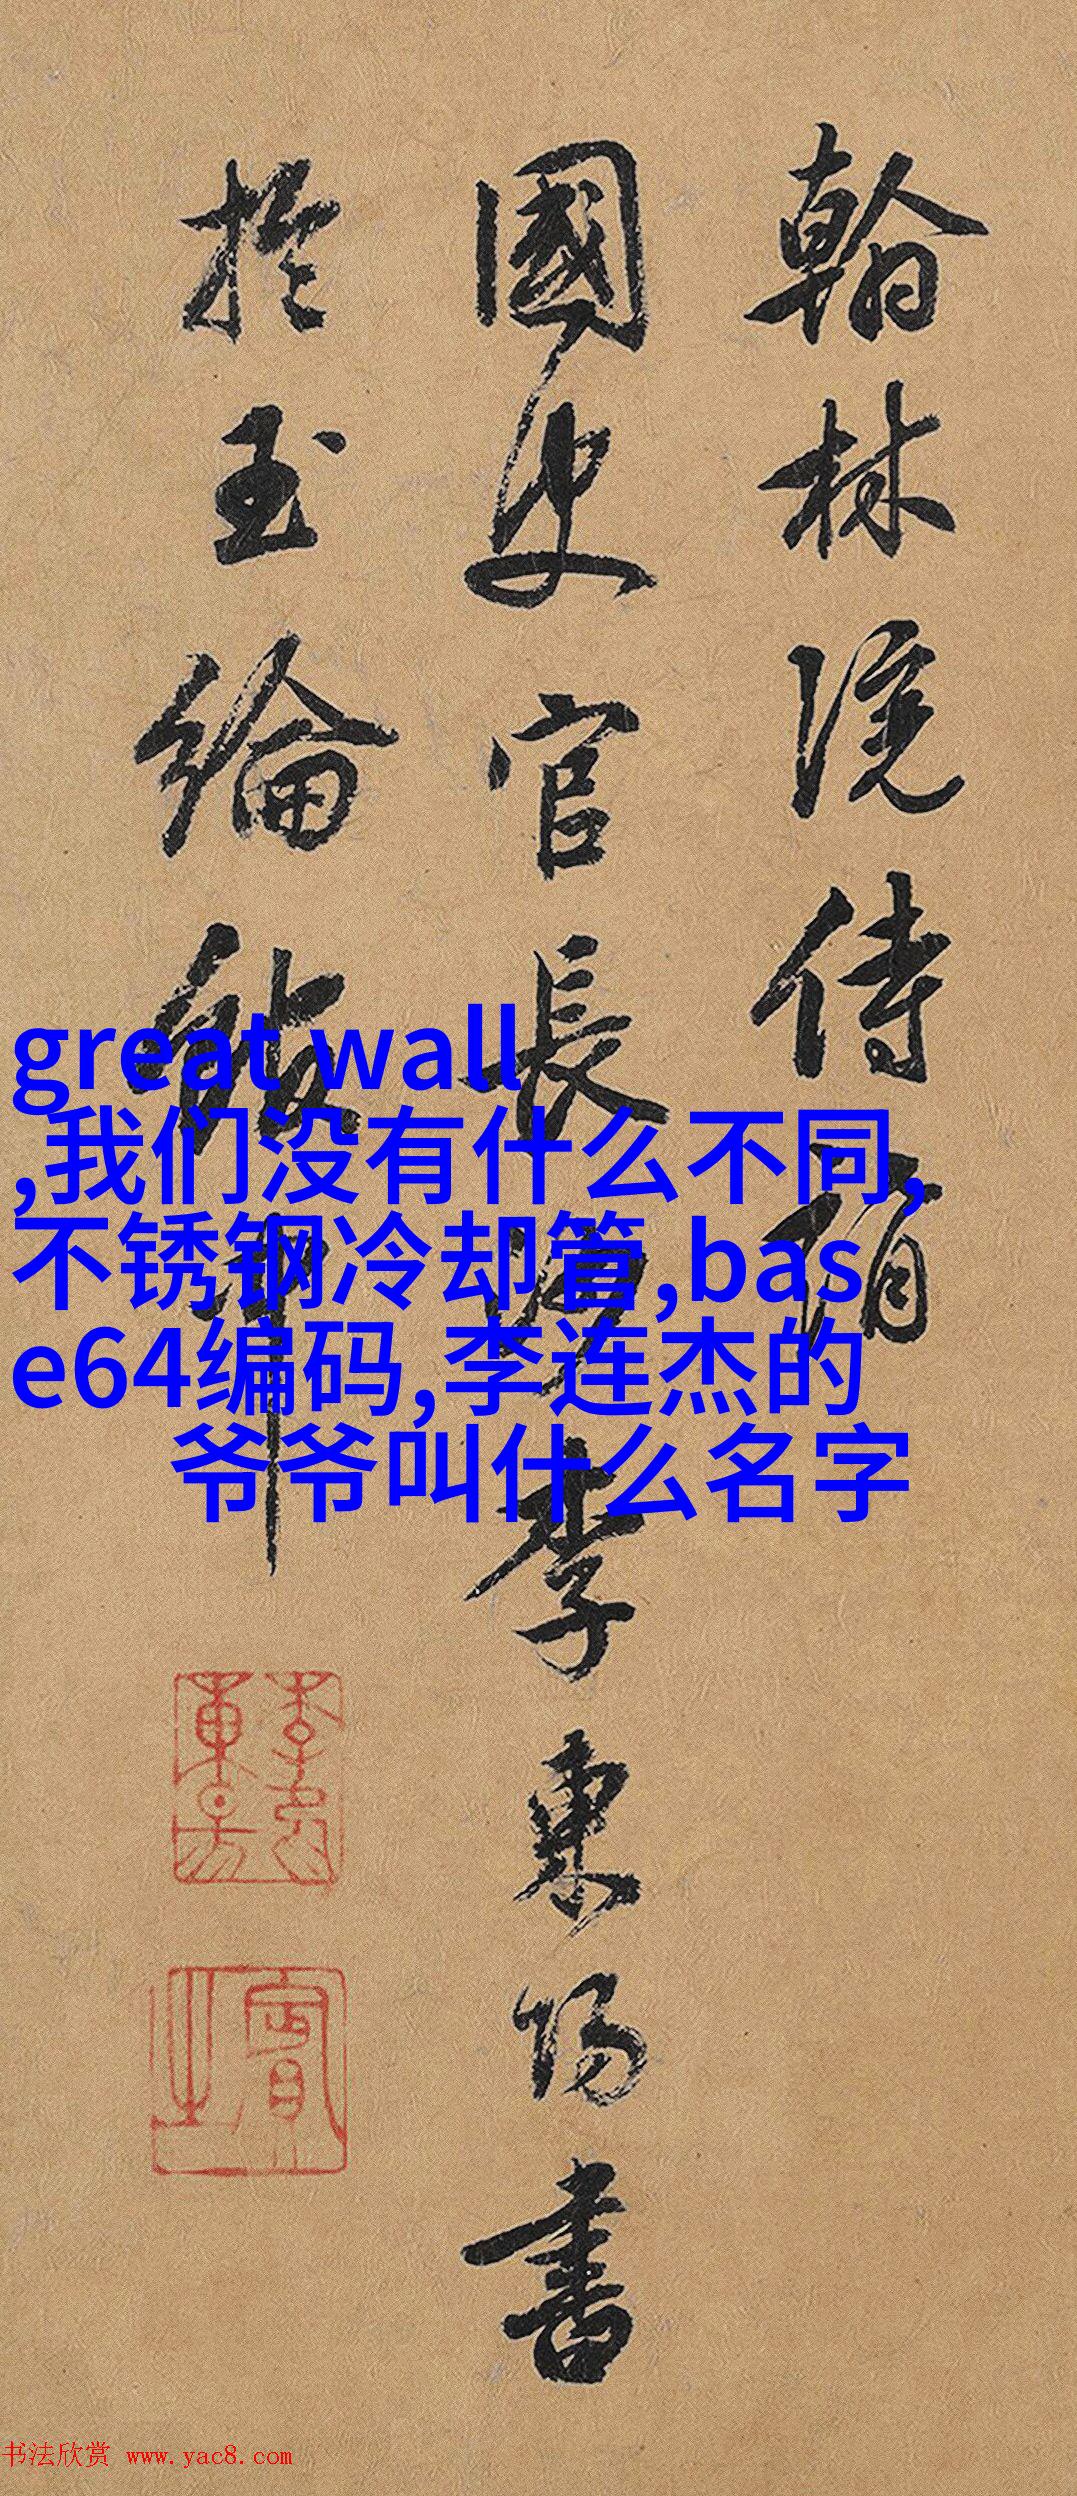 翰林院侍
國史官長沙李東陽書
於玉綸能中
great wall
,我们没有什么不同,
不锈钢冷却管,bas
e64编码,李连杰的
爷爷叫什么名字
书法欣赏 www.yac8.com